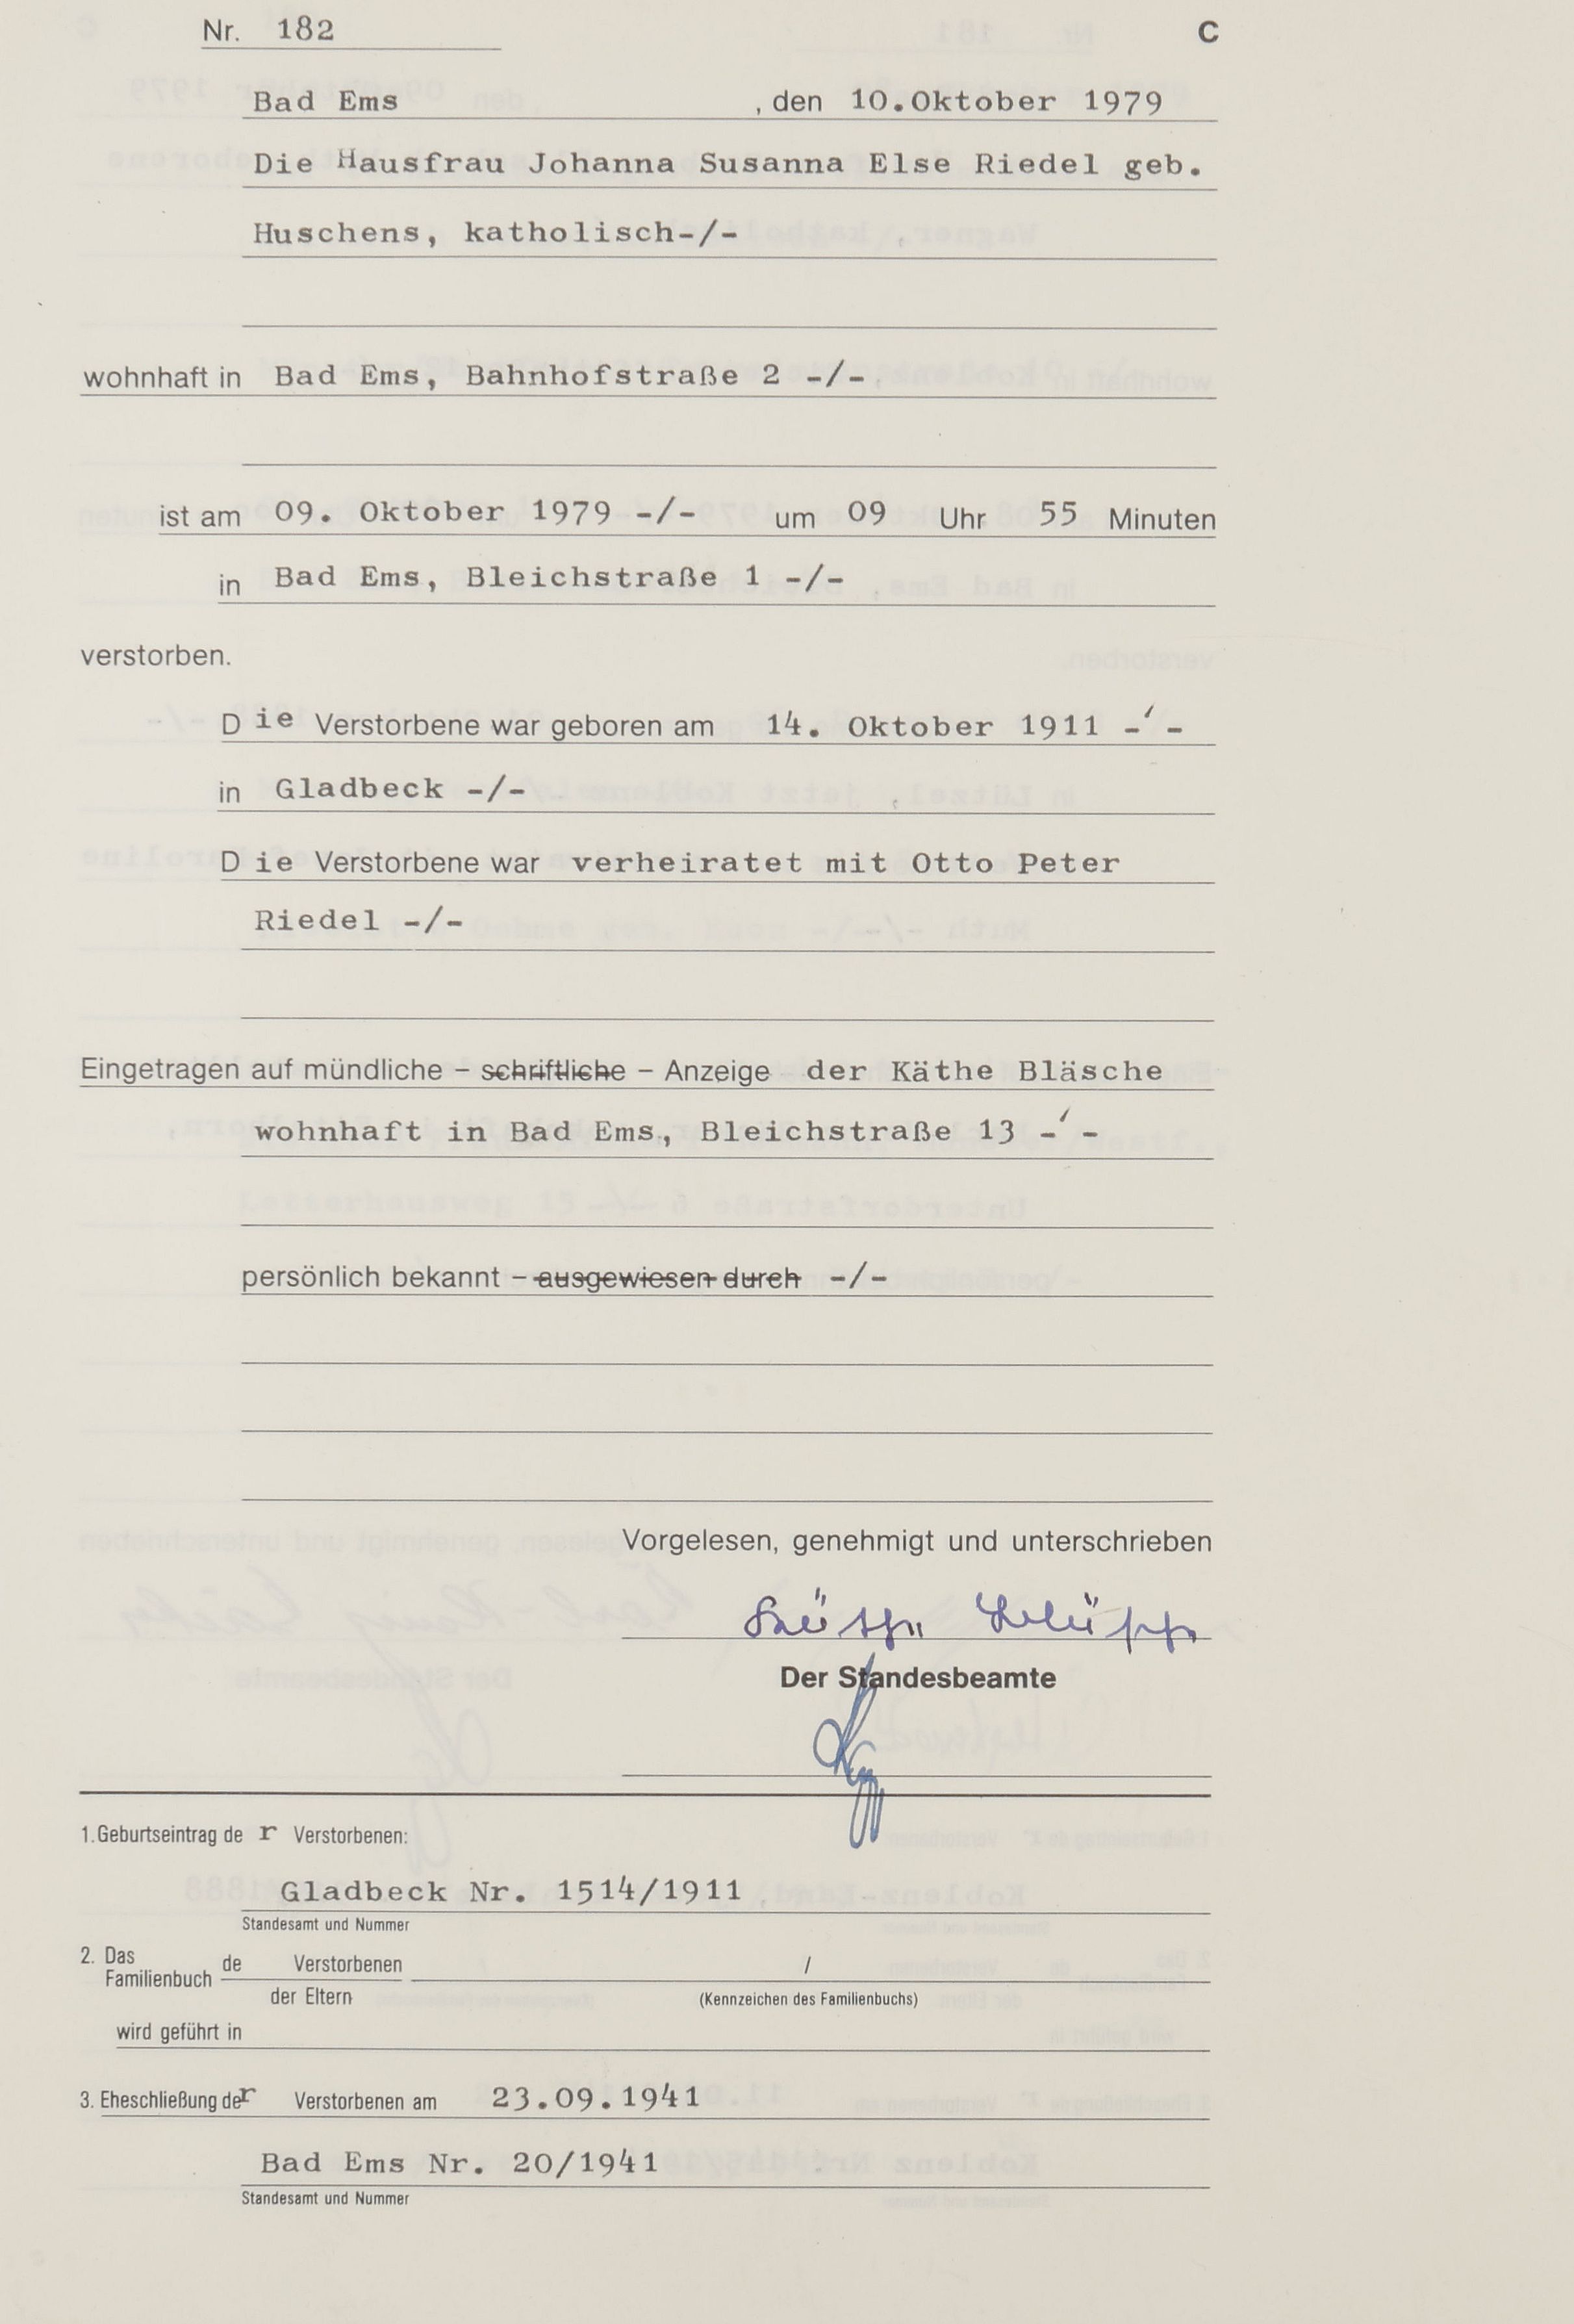 Nr. 182
C
Bad Ems , den 10.Oktober 1979
Die Hausfrau Johanna Susanna Else Riedel geb.
Huschens, katholisch-/-
wohnhaft in Bad Ems, Bahnhofstraße 2 -/-
ist am 09. Oktober 1979 -/- um 09 Uhr 55 Minuten
in Bad Ems, Bleichstraße 1 -/-
verstorben.
D ie Verstorbene war geboren am 14. Oktober 1911 -/-
in Gladbeck -/-
D ie Verstorbene war verheiratet mit Otto Peter
Riedel -/-
Eingetragen auf mündliche – schriftliche – Anzeige der Käthe Bläsche
wohnhaft in Bad Ems, Bleichstraße 13 -/-
persönlich bekannt – ausgewiesen durch -/-
Vorgelesen, genehmigt und unterschrieben
Der Standesbeamte
1. Geburtseintrag de r Verstorbenen:
Gladbeck Nr. 1514/1911
Standesamt und Nummer
2. Das Familienbuch de Verstorbenen /
der Eltern (Kennzeichen des Familienbuchs)
wird geführt in
3. Eheschließung der Verstorbenen am 23.09.1941
Bad Ems Nr. 20/1941
Standesamt und Nummer